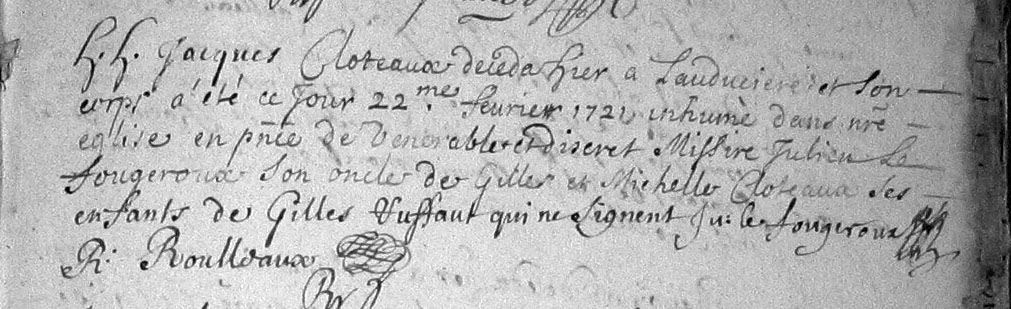 h. h. Jacques Cloteaux deceda hier a Lauduciere et son
corps a été ce jour 22me. feurier 1721 inhumé dans nre
eglise en pnce de Venerable et discret Missire Julien Le
fougeroux son oncle de Gilles et Michelle Cloteaux ses
enfants de Gilles Vuffaut qui ne signent Ju: le fougeroux
R: Roulleaux